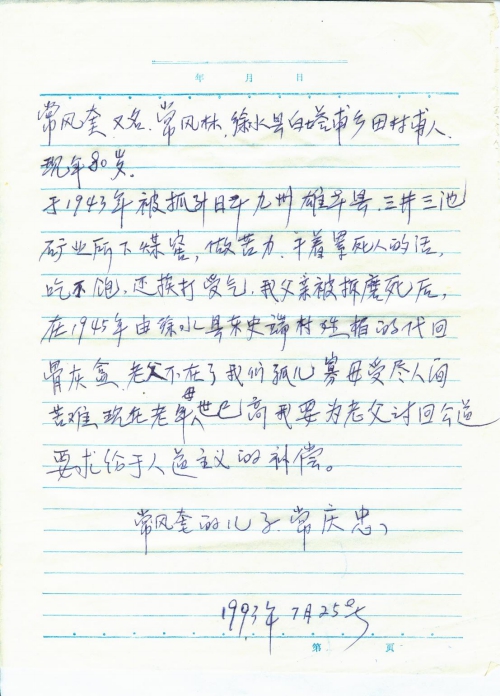 年 月 日
常风奎 又名.常风林.徐水县白塔甫乡田村甫人.
现年80岁.
于1943年被抓到日本九州 雄本县.三井三池
矿业所下煤窑,做苦力.干着累死人的活,
吃不饱.还挨打受气.我父亲被折磨死后,
在1945年由徐水县东史端村姓招的代回
骨灰盒.老父不在了我们孤儿寡母受尽人间
苦难.现在老母年世已高我要为老父讨回公道
要求给于人道主义的补偿。
常风奎的儿子.常庆忠
1993年7月25号
第 页